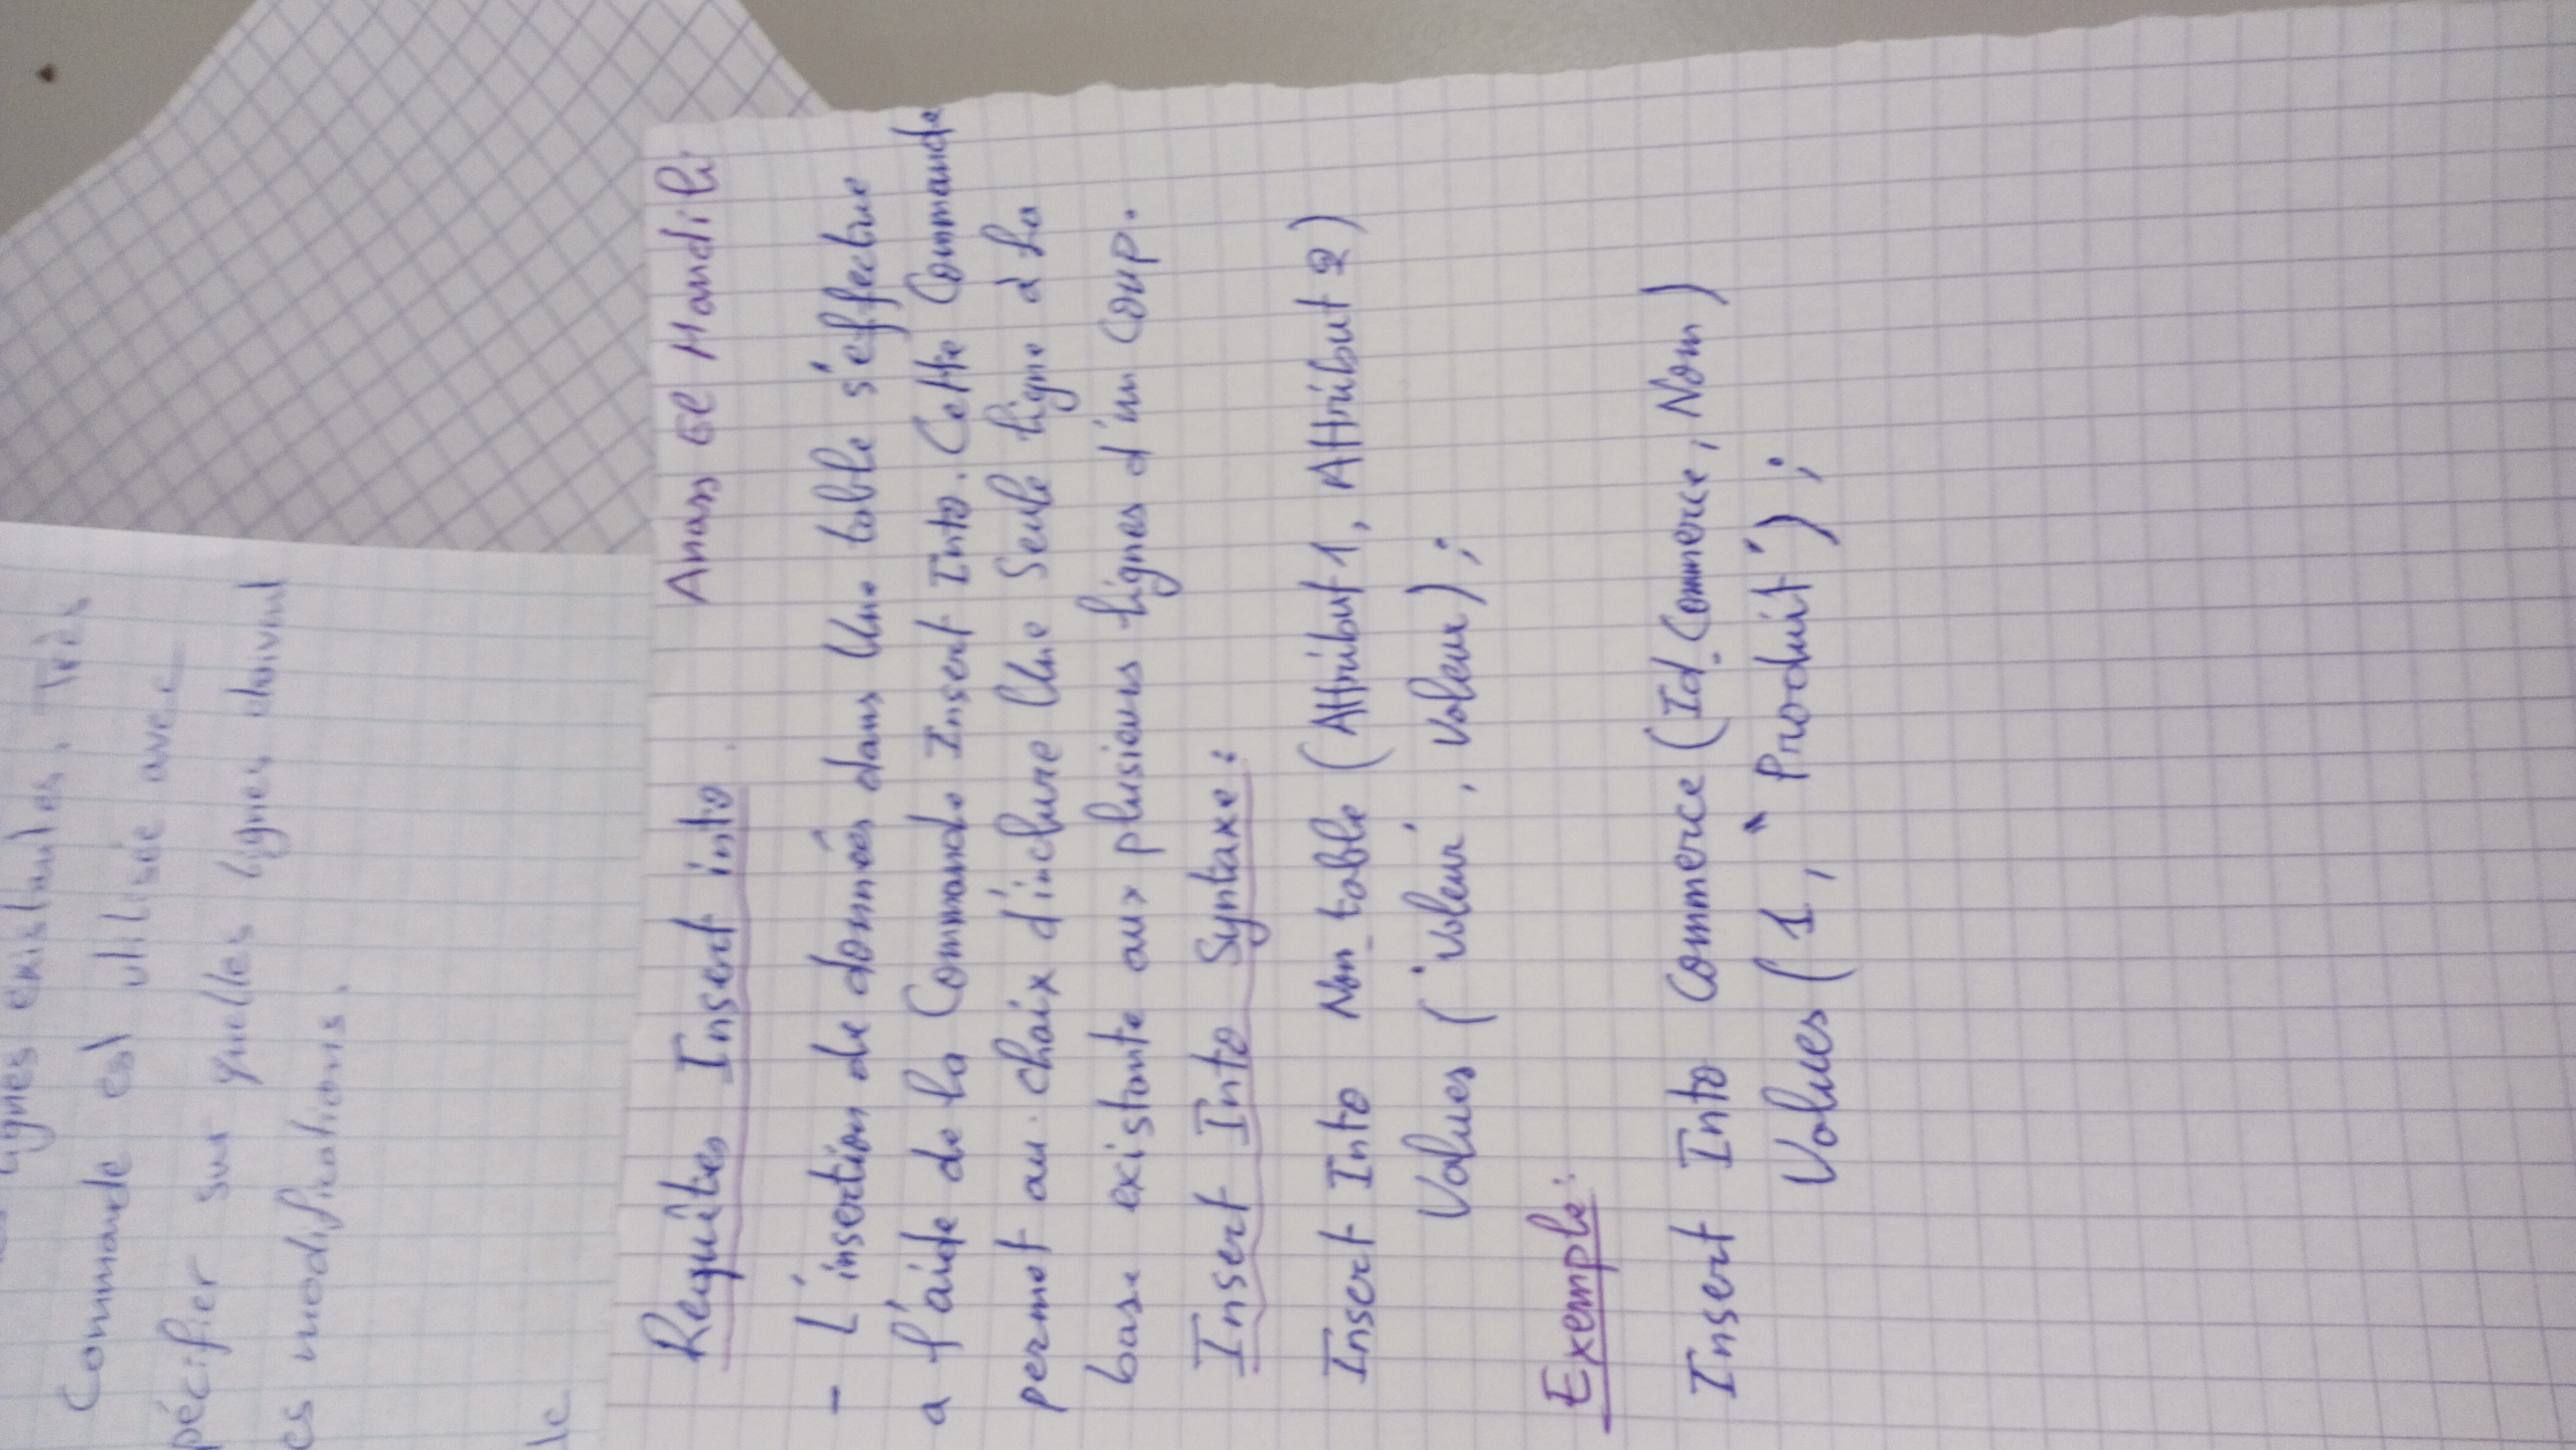 lignes existantes. Très
Commande est utilisée avec
pécifier sur quelles lignes doivent
es modifications.
le
Requîtes Insert into. Anass El Handili
- L'insertion de données dans Une table s'effectue
a l'aide de la Commande Insert Into. Cette Commande
permet au choix d'inclure Une Seule ligne à la
base existante aux plusieurs lignes d'un coup.
Insert Into Syntaxe:
Insert Into Nom_table (Attribut 1, Attribut 2)
Values ('valeur', Valeur);
Exemple:
Insert Into Commerce (Id_Commerce, Nom)
Values (1, "Produit");